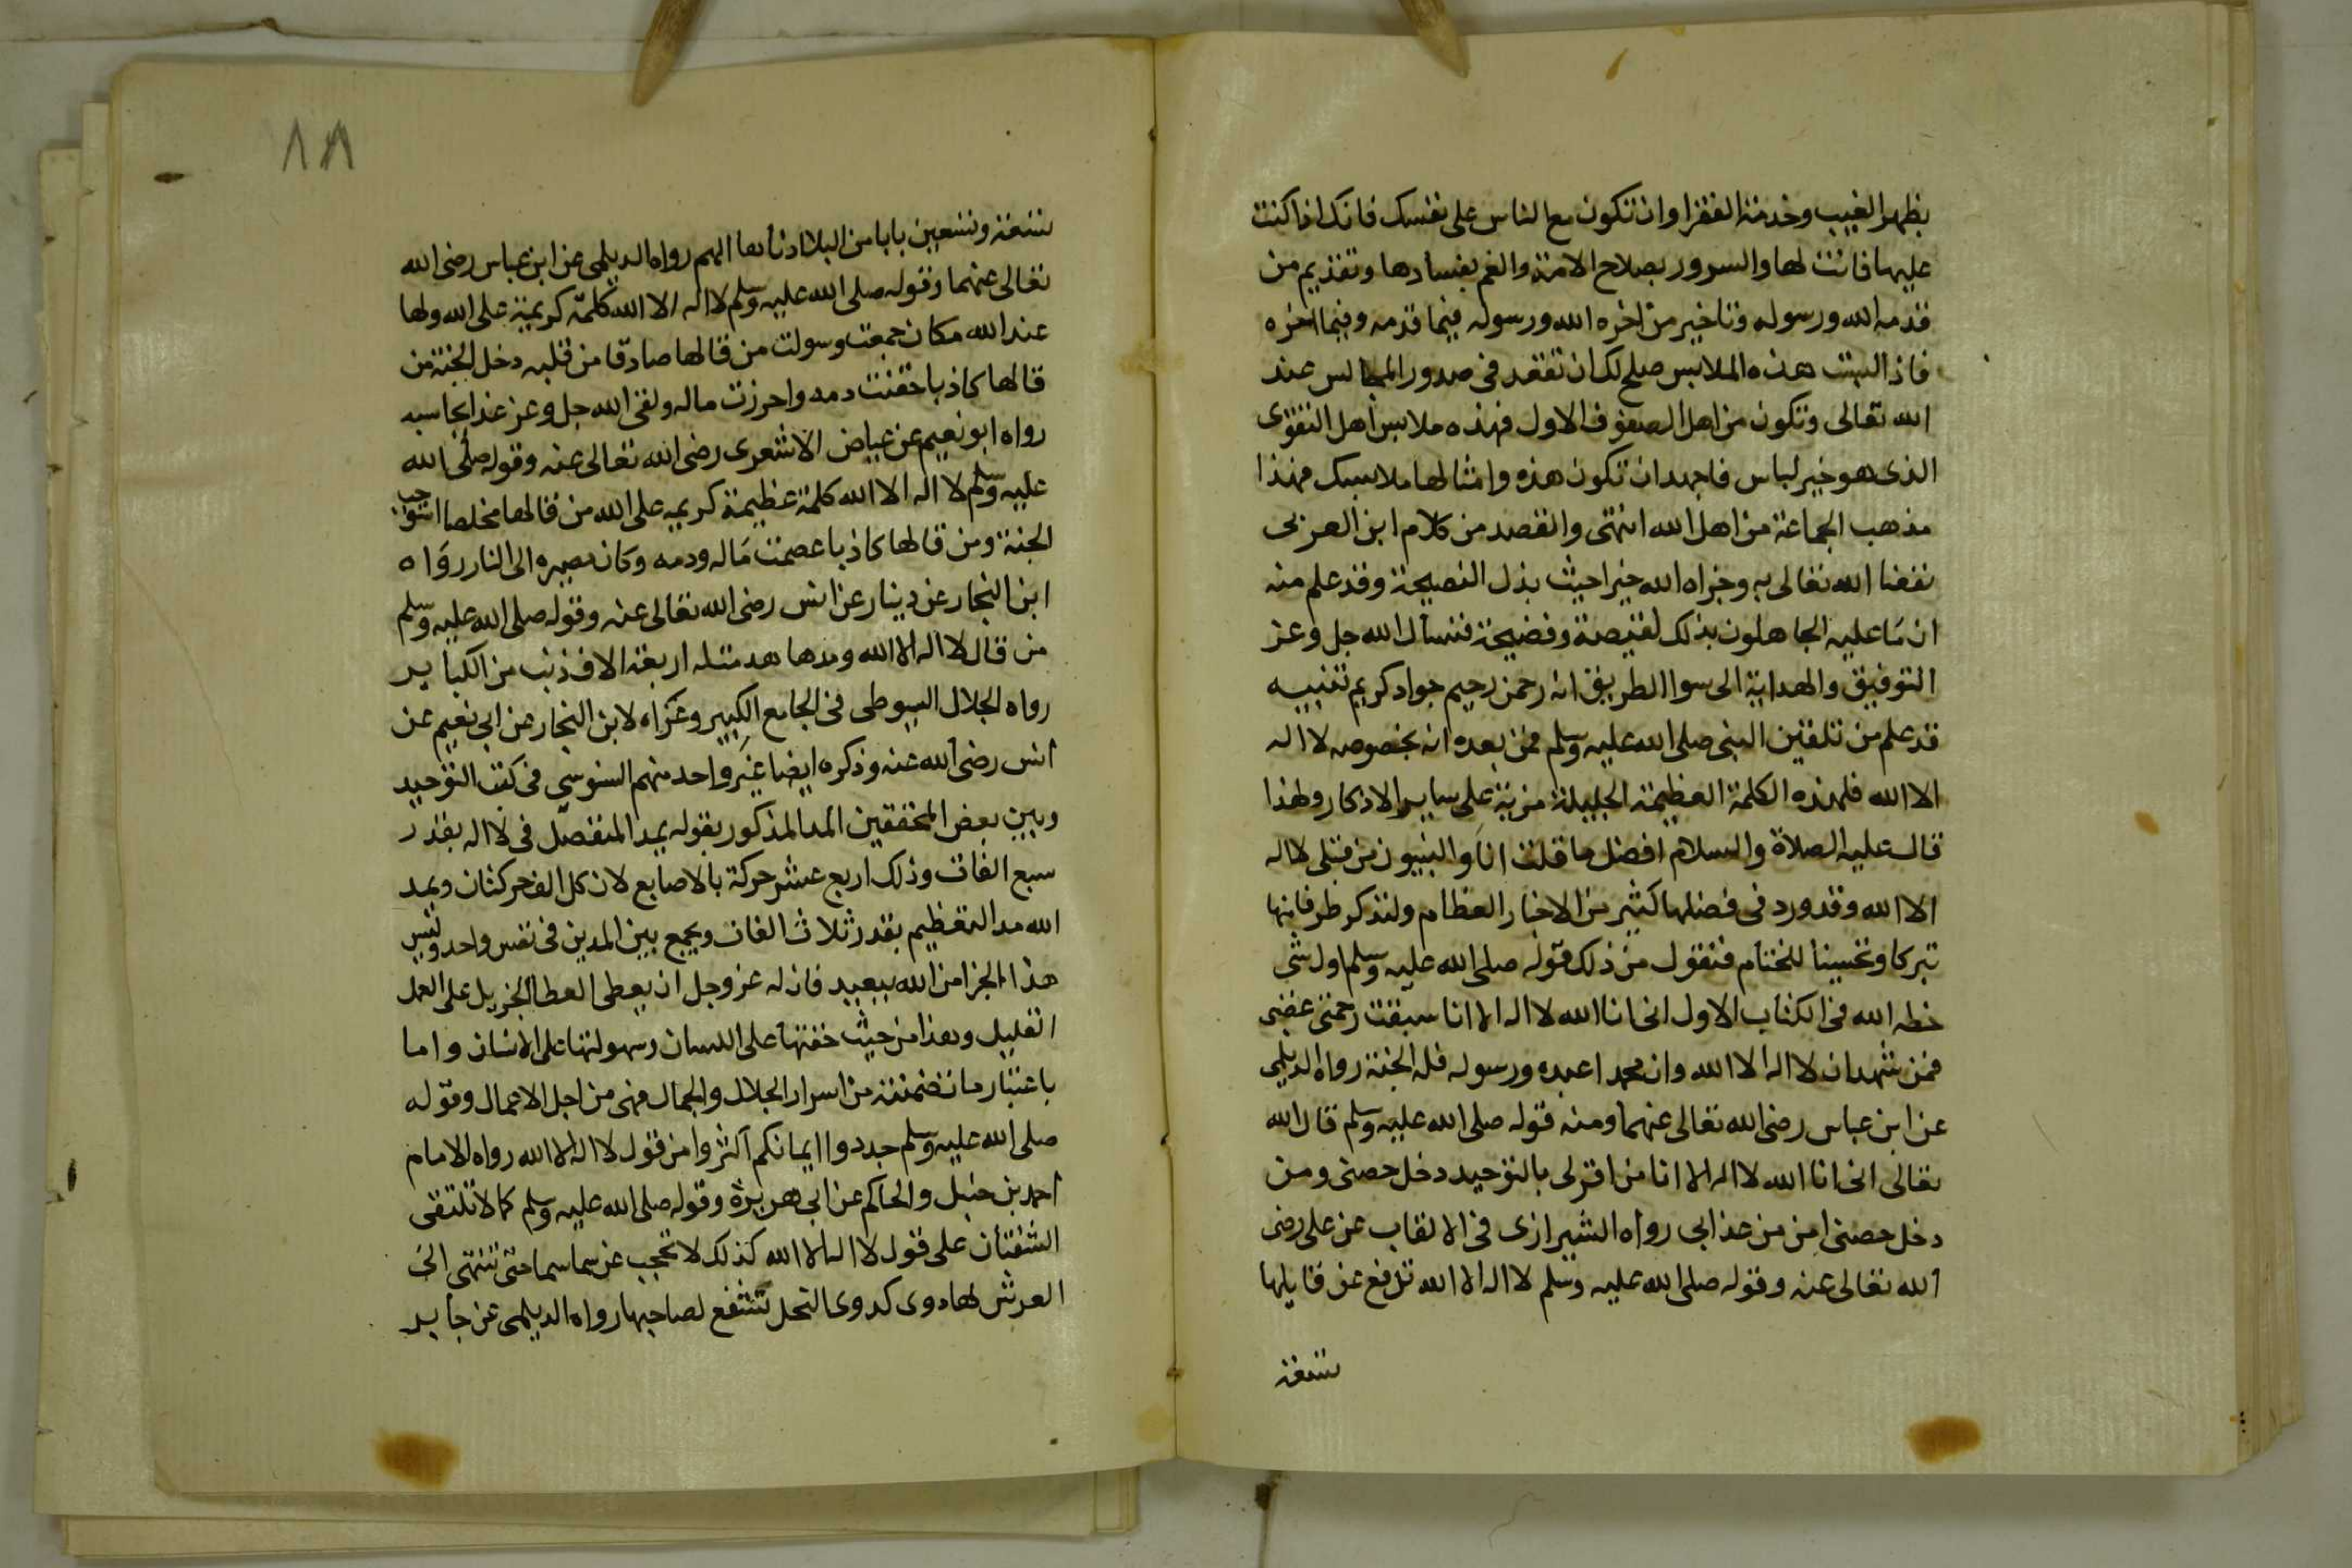 بظهر الغيب وخدمة الفقرا وان تكون مع الناس على نفسك فانك اذا كنت
عليها فانت لها والسرور بصلاح الامة والغم بفسادها وتقديم من
قدمه الله ورسوله وتاخير من اخره الله ورسوله فيما قدمه وفيما اخره
فاذا لبست هذه الملابس صلح لك ان تقعد في صدور المجالس عند
الله تعالى وتكون من اهل الصفوف الاول فهذه ملابس اهل التقوى
الذى هو خير لباس فاجهد ان تكون هذه وامثالها ملابسك فهذا
مذهب الجماعة من اهل الله انتهى والقصد من كلام ابن العربى
نفعنا الله تعالى به وجزاه الله خيرا حيث بذل النصيحة وقد علم منه
ان ما عليه الجاهلون بذلك لنقيصة وفضيحة فنسأل الله جل وعز
التوفيق والهداية الى سوا الطريق انه رحمن رحيم جواد كريم تنبيه
قد علم من تلقين النبى صلى الله عليه وسلم فمن بعده انه بخصوص لا اله
الا الله فلهذه الكلمة العظيمة الجليلة مزية على ساير الاذكار ولهذا
قال عليه الصلاة والسلام افضل ما قلت انا والنبيون من قبلى لا اله
الا الله وقد ورد في فضلها كثير من الاخبار العظام ولنذكر طرفا منها
تبركا وتحسينا للختام فنقول من ذلك قوله صلى الله عليه وسلم اول شى
خطه الله في الكتاب الاول انى انا الله لا اله الا انا سبقت رحمتى غضبى
فمن شهد ان لا اله الا الله وان محمدا عبده ورسوله فله الجنة رواه الديلمى
عن ابن عباس رضى الله تعالى عنهما ومنه قوله صلى الله عليه وسلم قال الله
تعالى انى انا الله لا اله الا انا من اقر لى بالتوحيد دخل حصنى ومن
دخل حصنى امن من عذابى رواه الشيرازى في الالقاب عن على رضى
الله تعالى عنه وقوله صلى الله عليه وسلم لا اله الا الله تدفع عن قايلها
تسعة
١٨
تسعة وتسعين بابا من البلا ادناها الهم رواه الديلمى عن ابن عباس رضى الله
تعالى عنهما وقوله صلى الله عليه وسلم لا اله الا الله كلمة كريمة على الله ولها
عند الله مكان جمعت وسولت من قالها صادقا من قلبه دخل الجنة من
قالها كاذبا حقنت دمه واحرزت ماله ولقى الله جل وعز غدا يحاسبه
رواه ابو نعيم عن عياض الاشعرى رضى الله تعالى عنه وقوله صلى الله
عليه وسلم لا اله الا الله كلمة عظيمة كريمه على الله من قالها مخلصا استوجب
الجنة ومن قالها كاذبا عصمت ماله ودمه وكان مصيره الى النار رواه
ابن النجار عن دينار عن انس رضى الله تعالى عنه وقوله صلى الله عليه وسلم
من قال لا اله الا الله ومدها هدمت له اربعة الاف ذنب من الكباير
رواه الجلال السيوطى فى الجامع الكبير وعزاه لابن النجار عن ابى نعيم عن
انس رضى الله عنه وذكره ايضا غير واحد منهم السنوسي فى كتب التوحيد
وبين بعض المحققين المد المذكور بقوله يمد المنفصل فى لا اله بقدر
سبع الفات وذلك اربع عشر حركة بالاصابع لان كل الف حركتان ويمد
الله مد التعظيم بقدر ثلاث الفات ويجمع بين المدين فى نفس واحد وليس
هذا الجزا من الله ببعيد فان له عز وجل ان يعطى العطا الجزيل على العمل
القليل وهذا من حيث خفتها على اللسان وسهولتها على الانسان واما
باعتبار ما تضمنته من اسرار الجلال والجمال فهى من اجل الاعمال وقوله
صلى الله عليه وسلم جددوا ايمانكم اكثروا من قول لا اله الا الله رواه الامام
احمد بن حنبل والحاكم عن ابى هريرة وقوله صلى الله عليه وسلم كما لا تلتقى
الشفتان على قول لا اله الا الله كذلك لا تحجب عن سما سما حتى تنتهى الى
العرش لها دوى كدوى النحل تشفع لصاحبها رواه الديلمى عن جابر